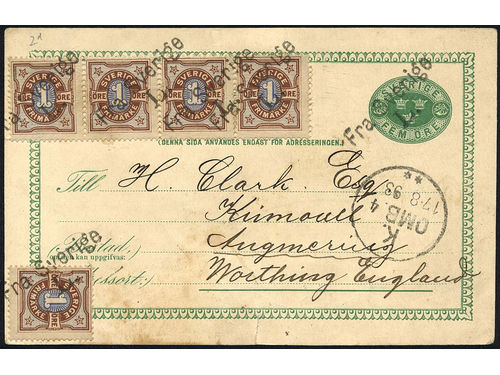 21
SVERIGE SVERIGE SVERIGE SVERIGE
1 ÖRE 1 ÖRE 1 ÖRE 1 ÖRE
FRIMÄRKE FRIMÄRKE FRIMÄRKE FRIMÄRKE
Fra Sverige
Fra Sverige
Fra Sverige
Fra Sverige
SVERIGE
FEM ÖRE
(DENNA SIDA ANVÄNDES ENDAST FÖR ADRESSERINGEN.)
Till H. Clark. Esq
K. OMB. 4
17-8 93
Augmering
kan uppgifvas:
Worthing England
Fra Sverige
SVERIGE
1 ÖRE
FRIMÄRKE